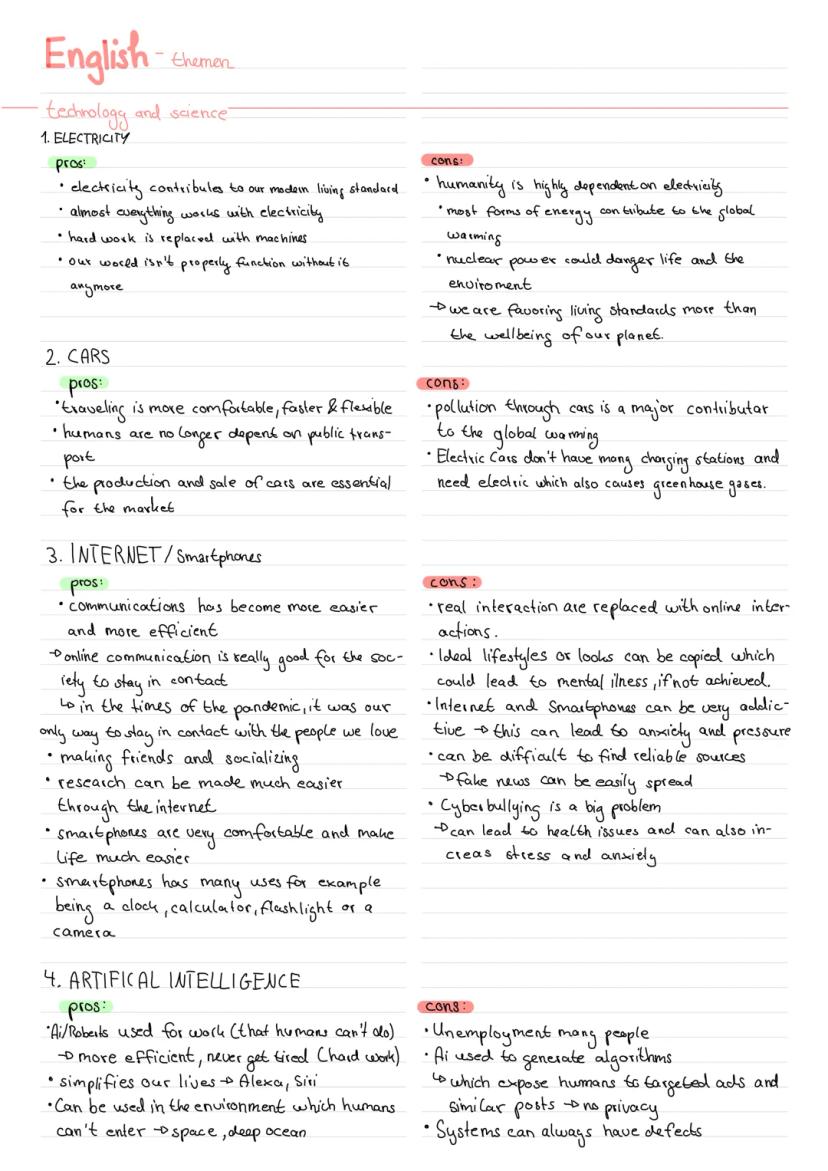 English - themen
technology and science
1. ELECTRICITY
pros:
• electricity contributes to our modern living standard
• almost everything works with electricity
• hard work is replaced with machines
• our world isn't properly function without it
anymore
cons:
• humanity is highly dependent on electricity
• most forms of energy contribute to the global
warming
• nuclear power could danger life and the
enviroment
→ we are favoring living standards more than
the wellbeing of our planet.
2. CARS
pros:
• traveling is more comfortable, faster & flexible
• humans are no longer depent on public trans-
port
• the production and sale of cars are essential
for the market
cons:
• pollution through cars is a major contributar
to the global warming
• Electric Cars don't have many charging stations and
need electric which also causes greenhouse gases.
3. INTERNET / Smartphones
pros:
• communications has become more easier
and more efficient
→ online communication is really good for the soc-
iety to stay in contact
↳ in the times of the pandemic, it was our
only way to stay in contact with the people we love
• making friends and socializing
• research can be made much easier
through the internet
• smartphones are very comfortable and make
life much easier
• smartphones has many uses for example
being a clock, calculator, flashlight or a
camera
cons:
• real interaction are replaced with online inter-
actions.
• Ideal lifestyles or looks can be copied which
could lead to mental illness, if not achieved.
• Internet and Smartphones can be very addic-
tive → this can lead to anxiety and pressure
• can be difficult to find reliable sources
→ fake news can be easily spread
• Cyberbullying is a big problem
→ can lead to health issues and can also in-
creas stress and anxiety
4. ARTIFICAL INTELLIGENCE
pros:
• Ai/Roberts used for work (that humans can't do)
→ more efficient, never get tired (hard work)
• simplifies our lives → Alexa, Siri
• Can be used in the environment which humans
can't enter → space, deep ocean
cons:
• Unemployment many people
• Ai used to generate algorithms
↳ which expose humans to targeted ads and
similar posts → no privacy
• Systems can always have defects